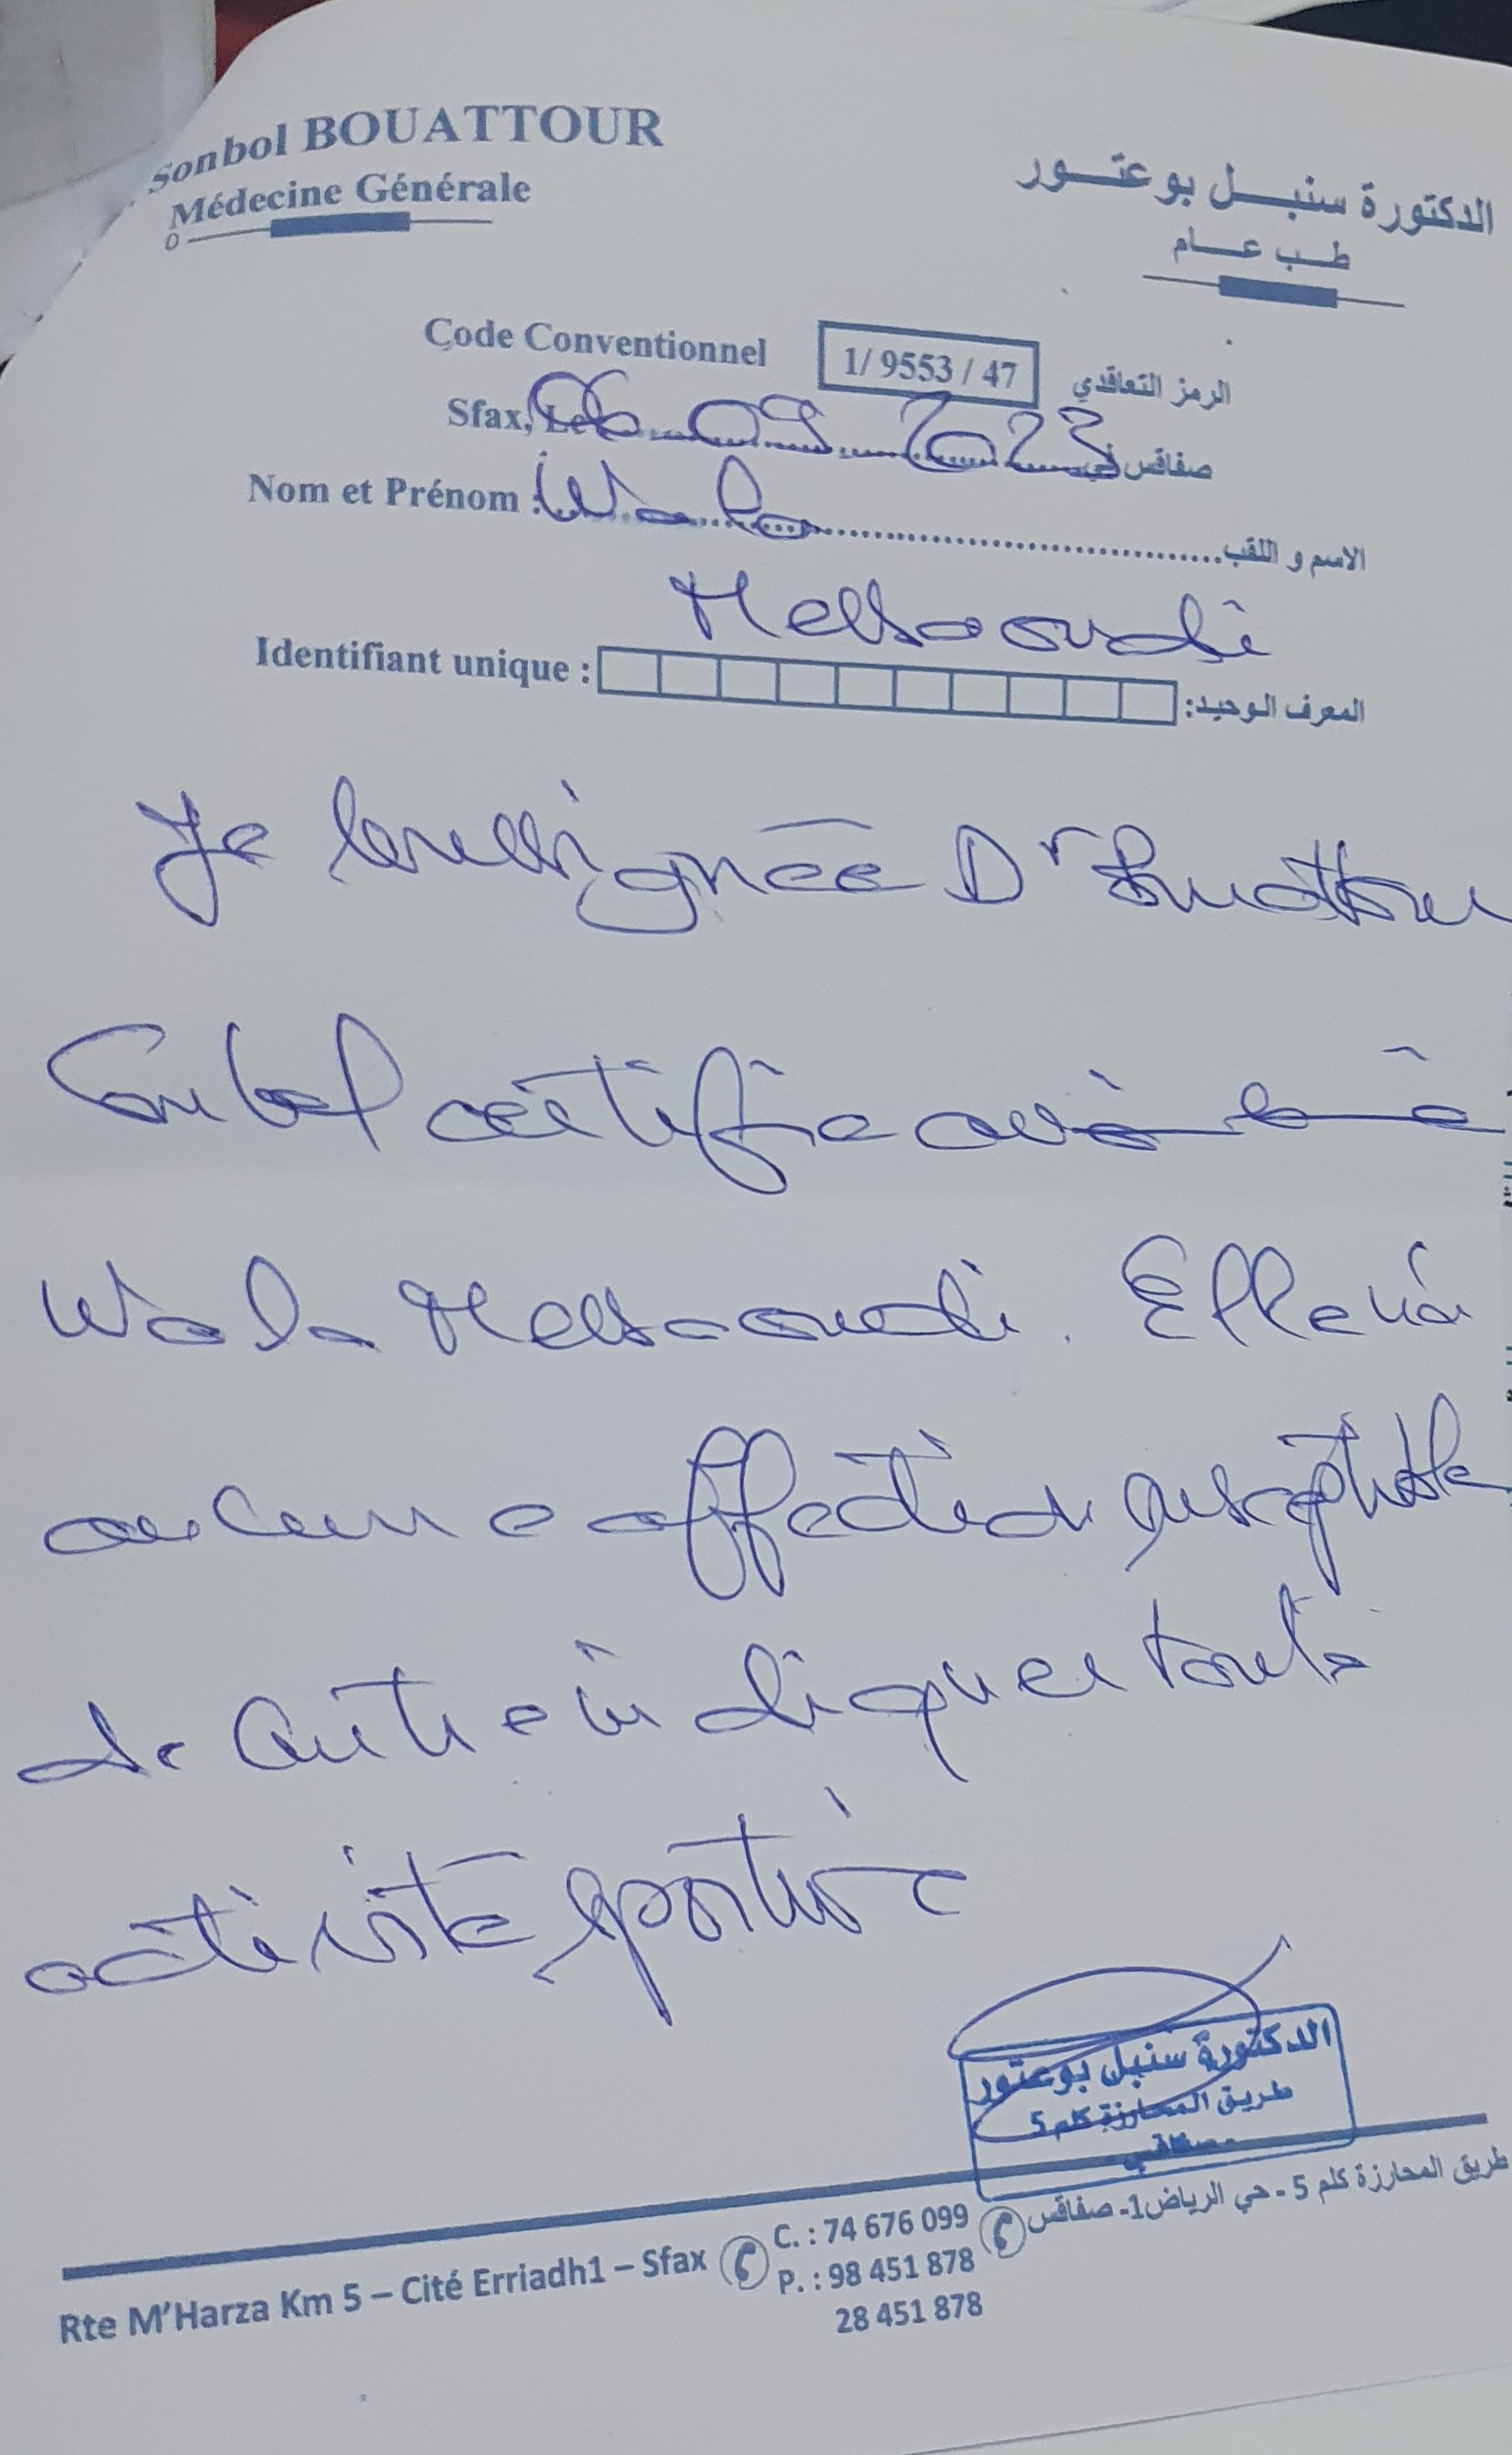 Sonbol BOUATTOUR
Médecine Générale
الدكتورة سنبل بوعتور
طب عام
Code Conventionnel 1/ 9553 / 47 الرمز التعاقدي
Sfax, Le 06 09 2023 صفاقس في
Nom et Prénom : Wala الاسم و اللقب
Messaoudi
Identifiant unique : المعرف الوحيد:
Je soussignée Dr Bouattour
Sonbol certifie avoir
Wala Messaoudi. Elle n'a
aucune affection susceptible
de contre indiquer toute
activité sportive
الدكتورة سنبل بوعتور
طريق المحارزة كلم 5
صفاقس
Rte M'Harza Km 5 – Cité Erriadh1 – Sfax
C. : 74 676 099
P. : 98 451 878
28 451 878
طريق المحارزة كلم 5 - حي الرياض1- صفاقس